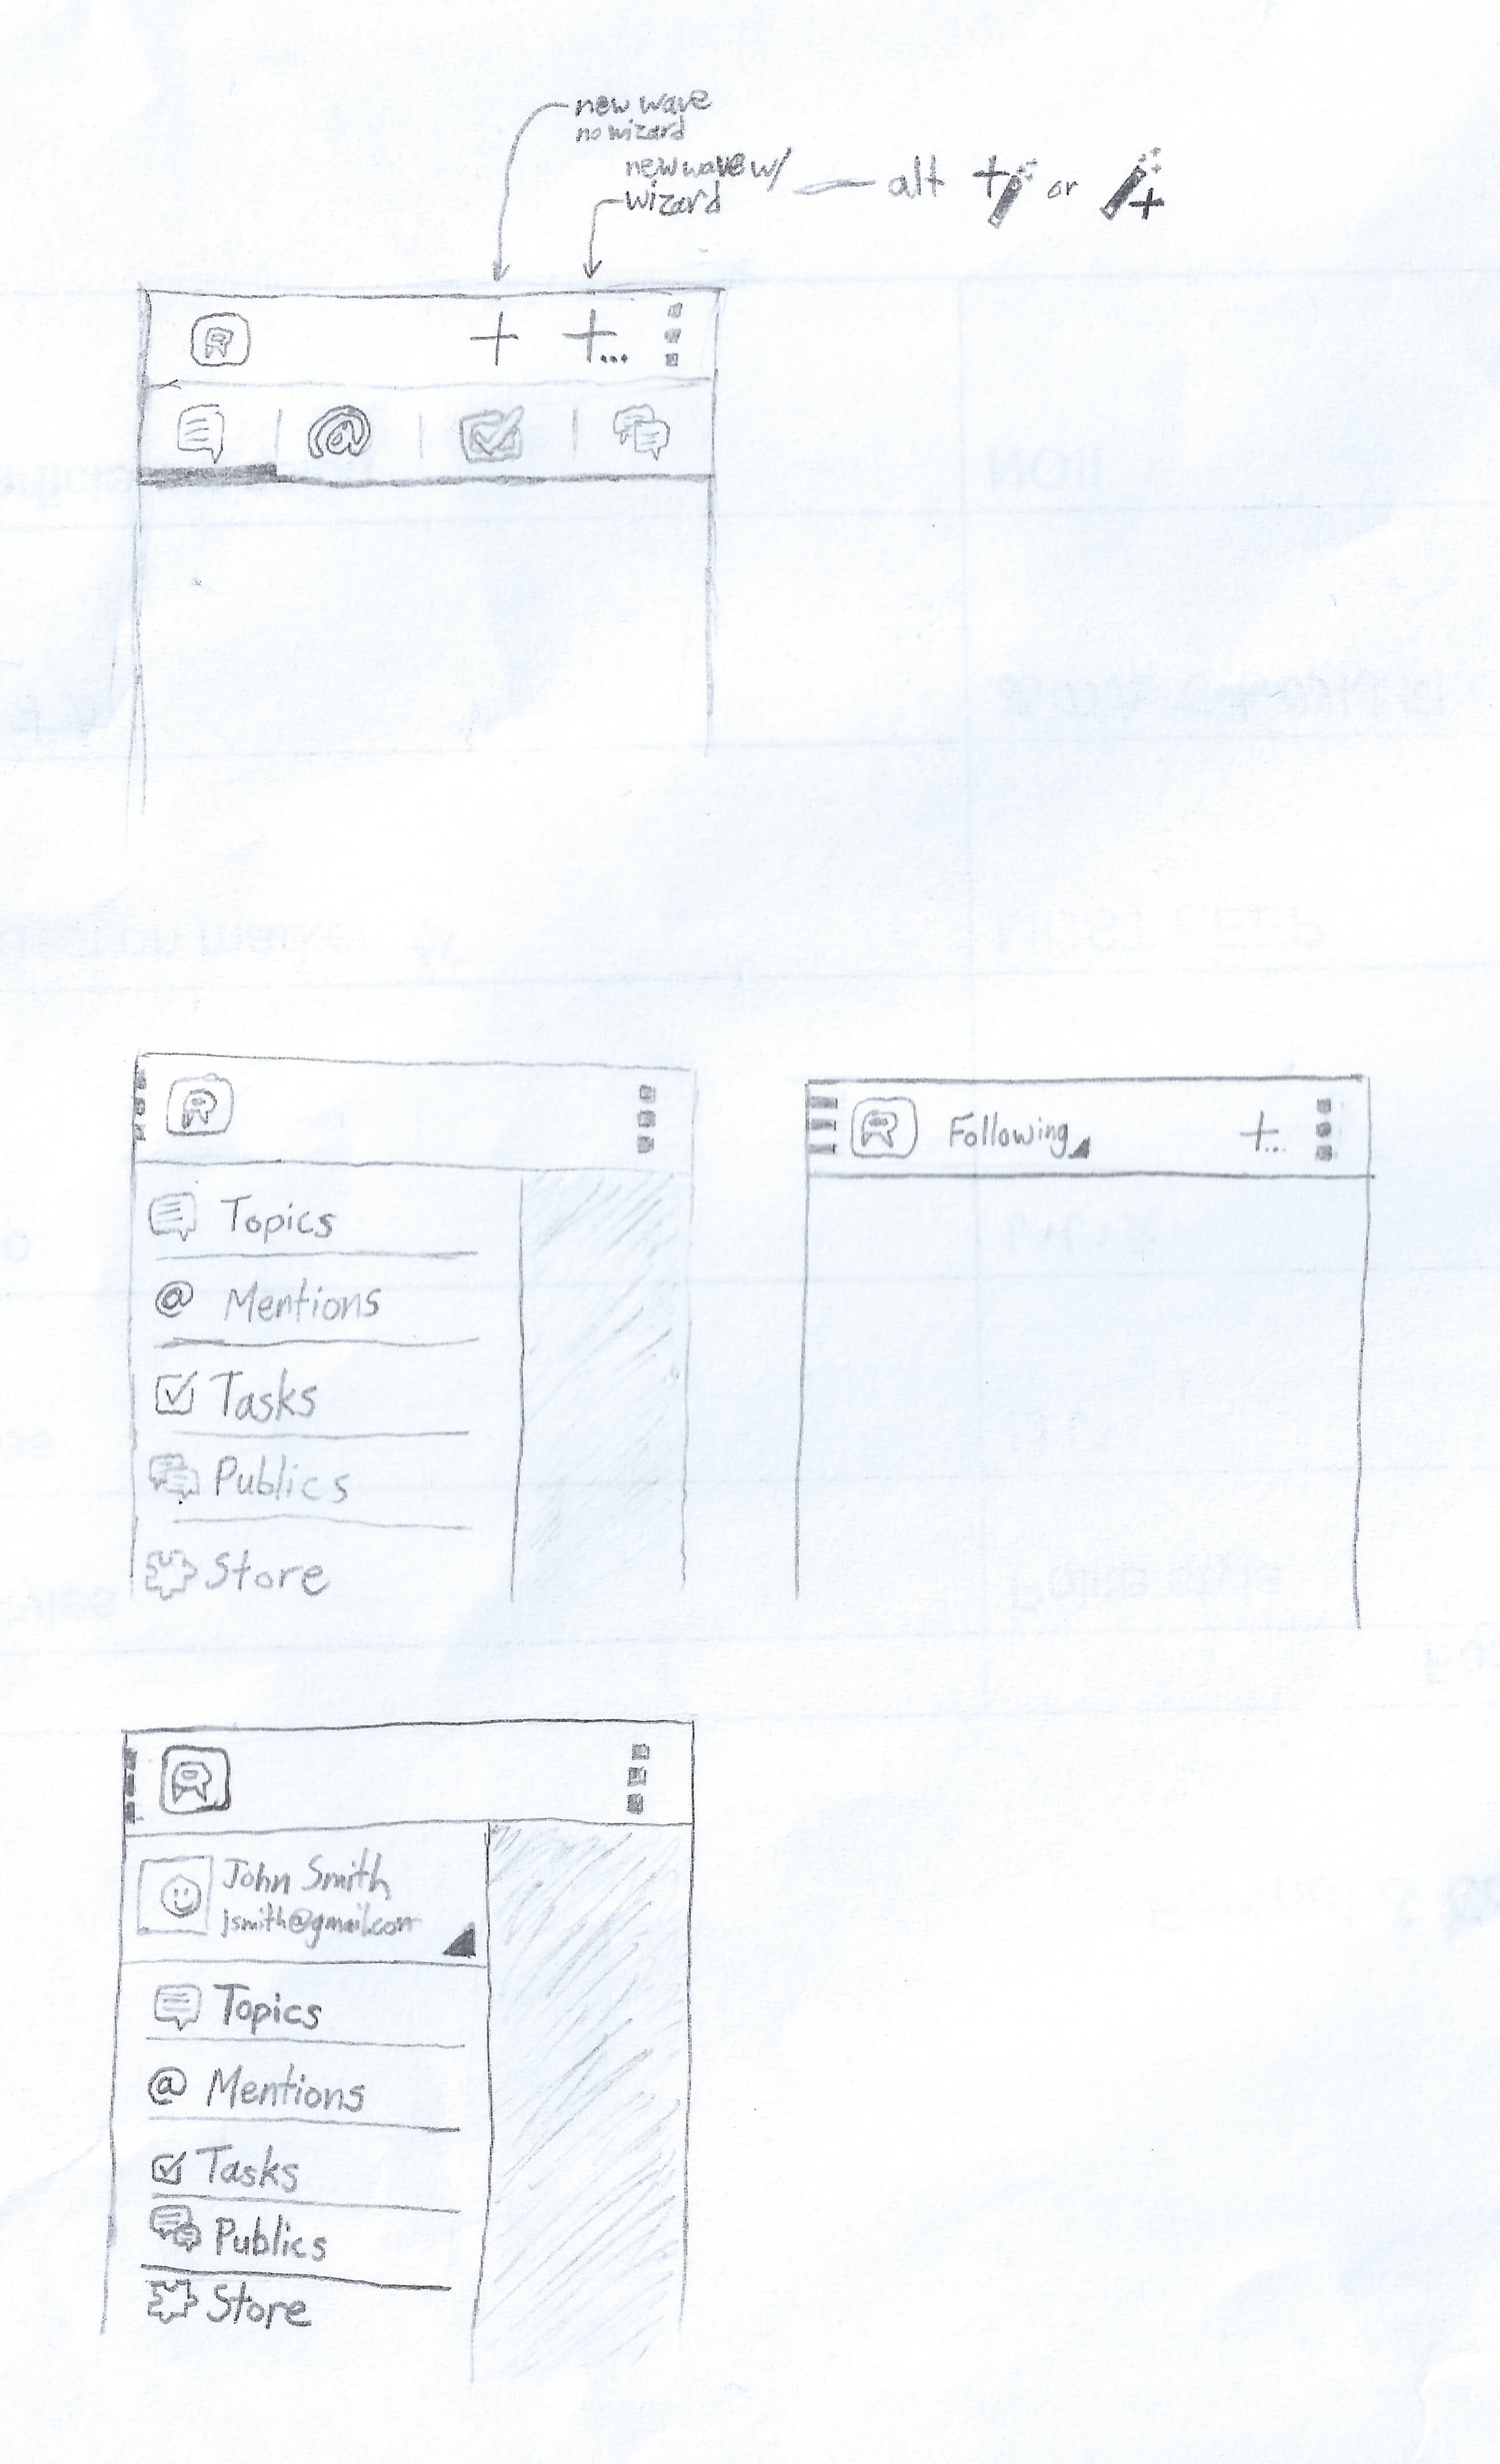 new wave
no wizard
new wave w/
wizard
alt + or +
+ +...
@
Topics
@ Mentions
Tasks
Publics
Store
Following +...
John Smith
jsmith@gmail.com
Topics
@ Mentions
Tasks
Publics
Store